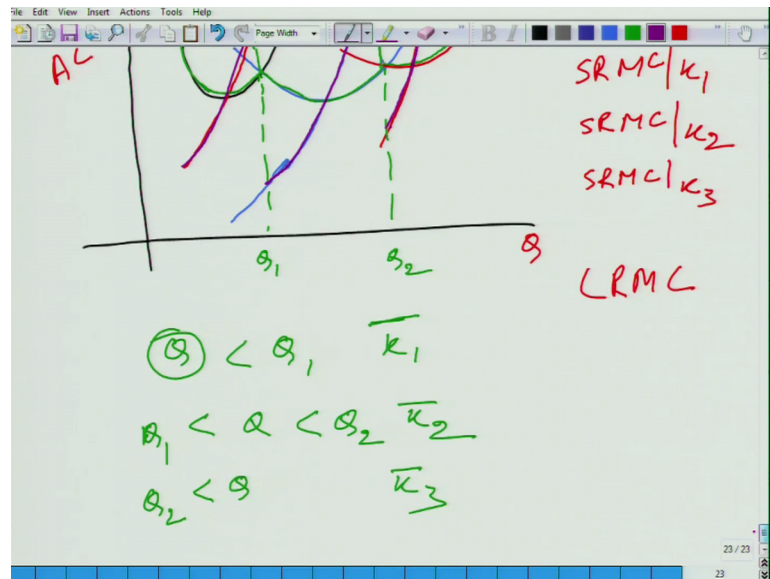 File Edit View Insert Actions Tools Help
Page Width
B I
AC
SRMC/K1
SRMC/K2
SRMC/K3
Q
Q1 Q2
LRMC
Q < Q1 K1
Q1 < Q < Q2 K2
Q2 < Q K3
23/23
23